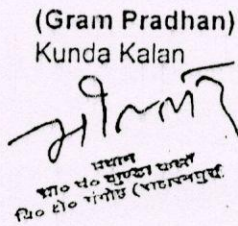 (Gram Pradhan)
Kunda Kalan
प्रधान
ग्रा० पं० कुण्डा कलां
वि० क्षे० गंगोह (सहारनपुर)